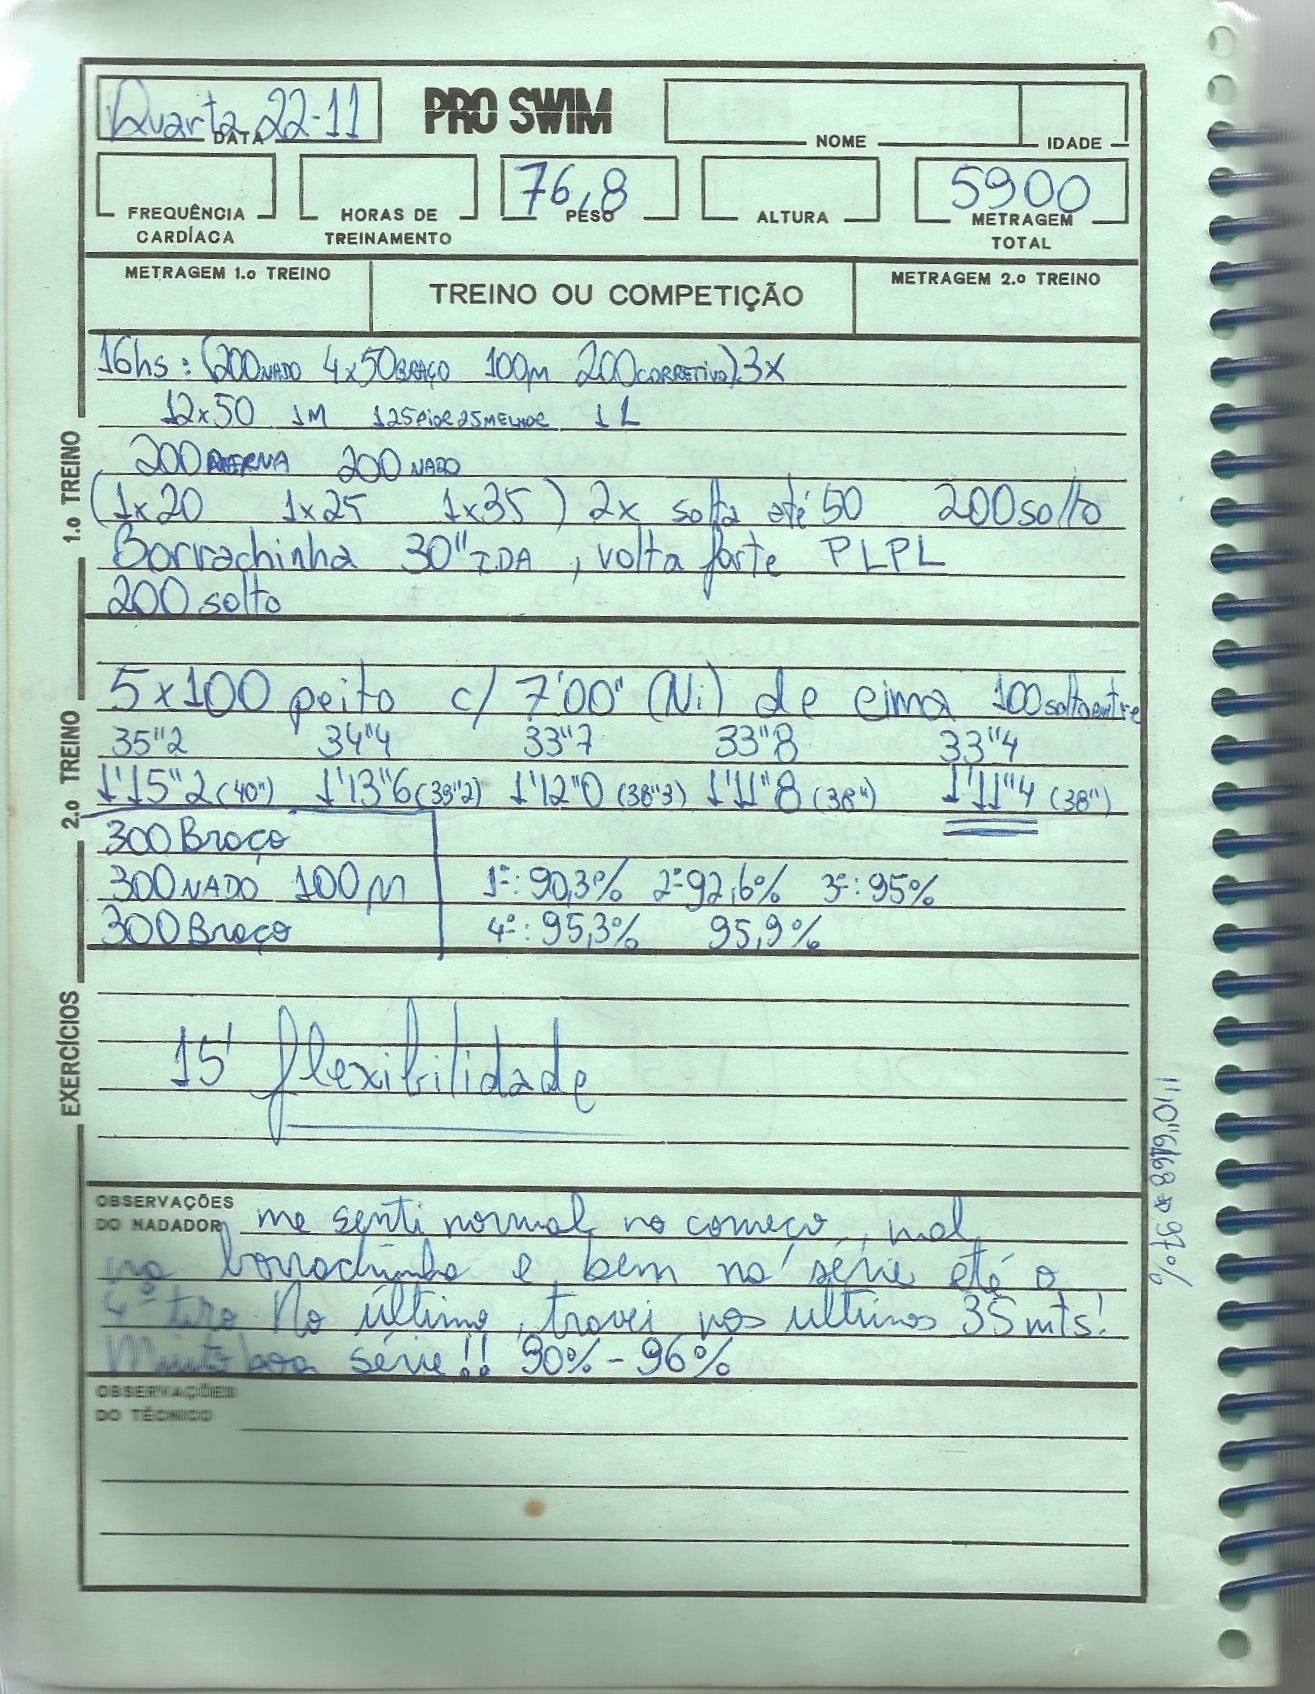 Quarta 22-11
DATA
PRO SWIM
NOME
IDADE
FREQUÊNCIA CARDÍACA
HORAS DE TREINAMENTO
76,8
PESO
ALTURA
5900
METRAGEM TOTAL
METRAGEM 1.o TREINO
TREINO OU COMPETIÇÃO
METRAGEM 2.o TREINO
1.o TREINO
16hs: (200 NADO 4x50 BRAÇO 100m 200 CORRETIVO) 3x
12x50 1M 125 PIOR 25 MELHOR 1L
200 PERNA 200 NADO
(1x20 1x25 1x35) 2x solta até 50 200 solto
Borrachinha 30" IDA, volta forte PLPL
200 solto
2.o TREINO
5x100 peito c/ 7'00" (Ni) de cima 100 solto entre
35"2 34"4 33"7 33"8 33"4
1'15"2 (40") 1'13"6 (39"2) 1'12"0 (38"3) 1'11"8 (38") 1'11"4 (38")
300 Braço
300 NADO 100m 1º: 90,3% 2º 92,6% 3º: 95%
300 Braço 4º: 95,3% 95,9%
EXERCÍCIOS
15' flexibilidade
OBSERVAÇÕES DO NADADOR
me senti normal no começo, mal
na borrachinha e bem na série até o
4º tiro. No último, travei nos ultimos 35mts!
Muito boa série!! 90% - 96%
OBSERVAÇÕES DO TÉCNICO
97%